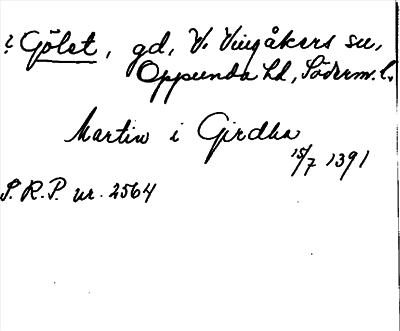 ? Gölet, gd, V. Vingåkers sn,
Oppunda hd, Söderm. l.
Martin i Girdha
15/7 1391
S.R.P. nr. 2564